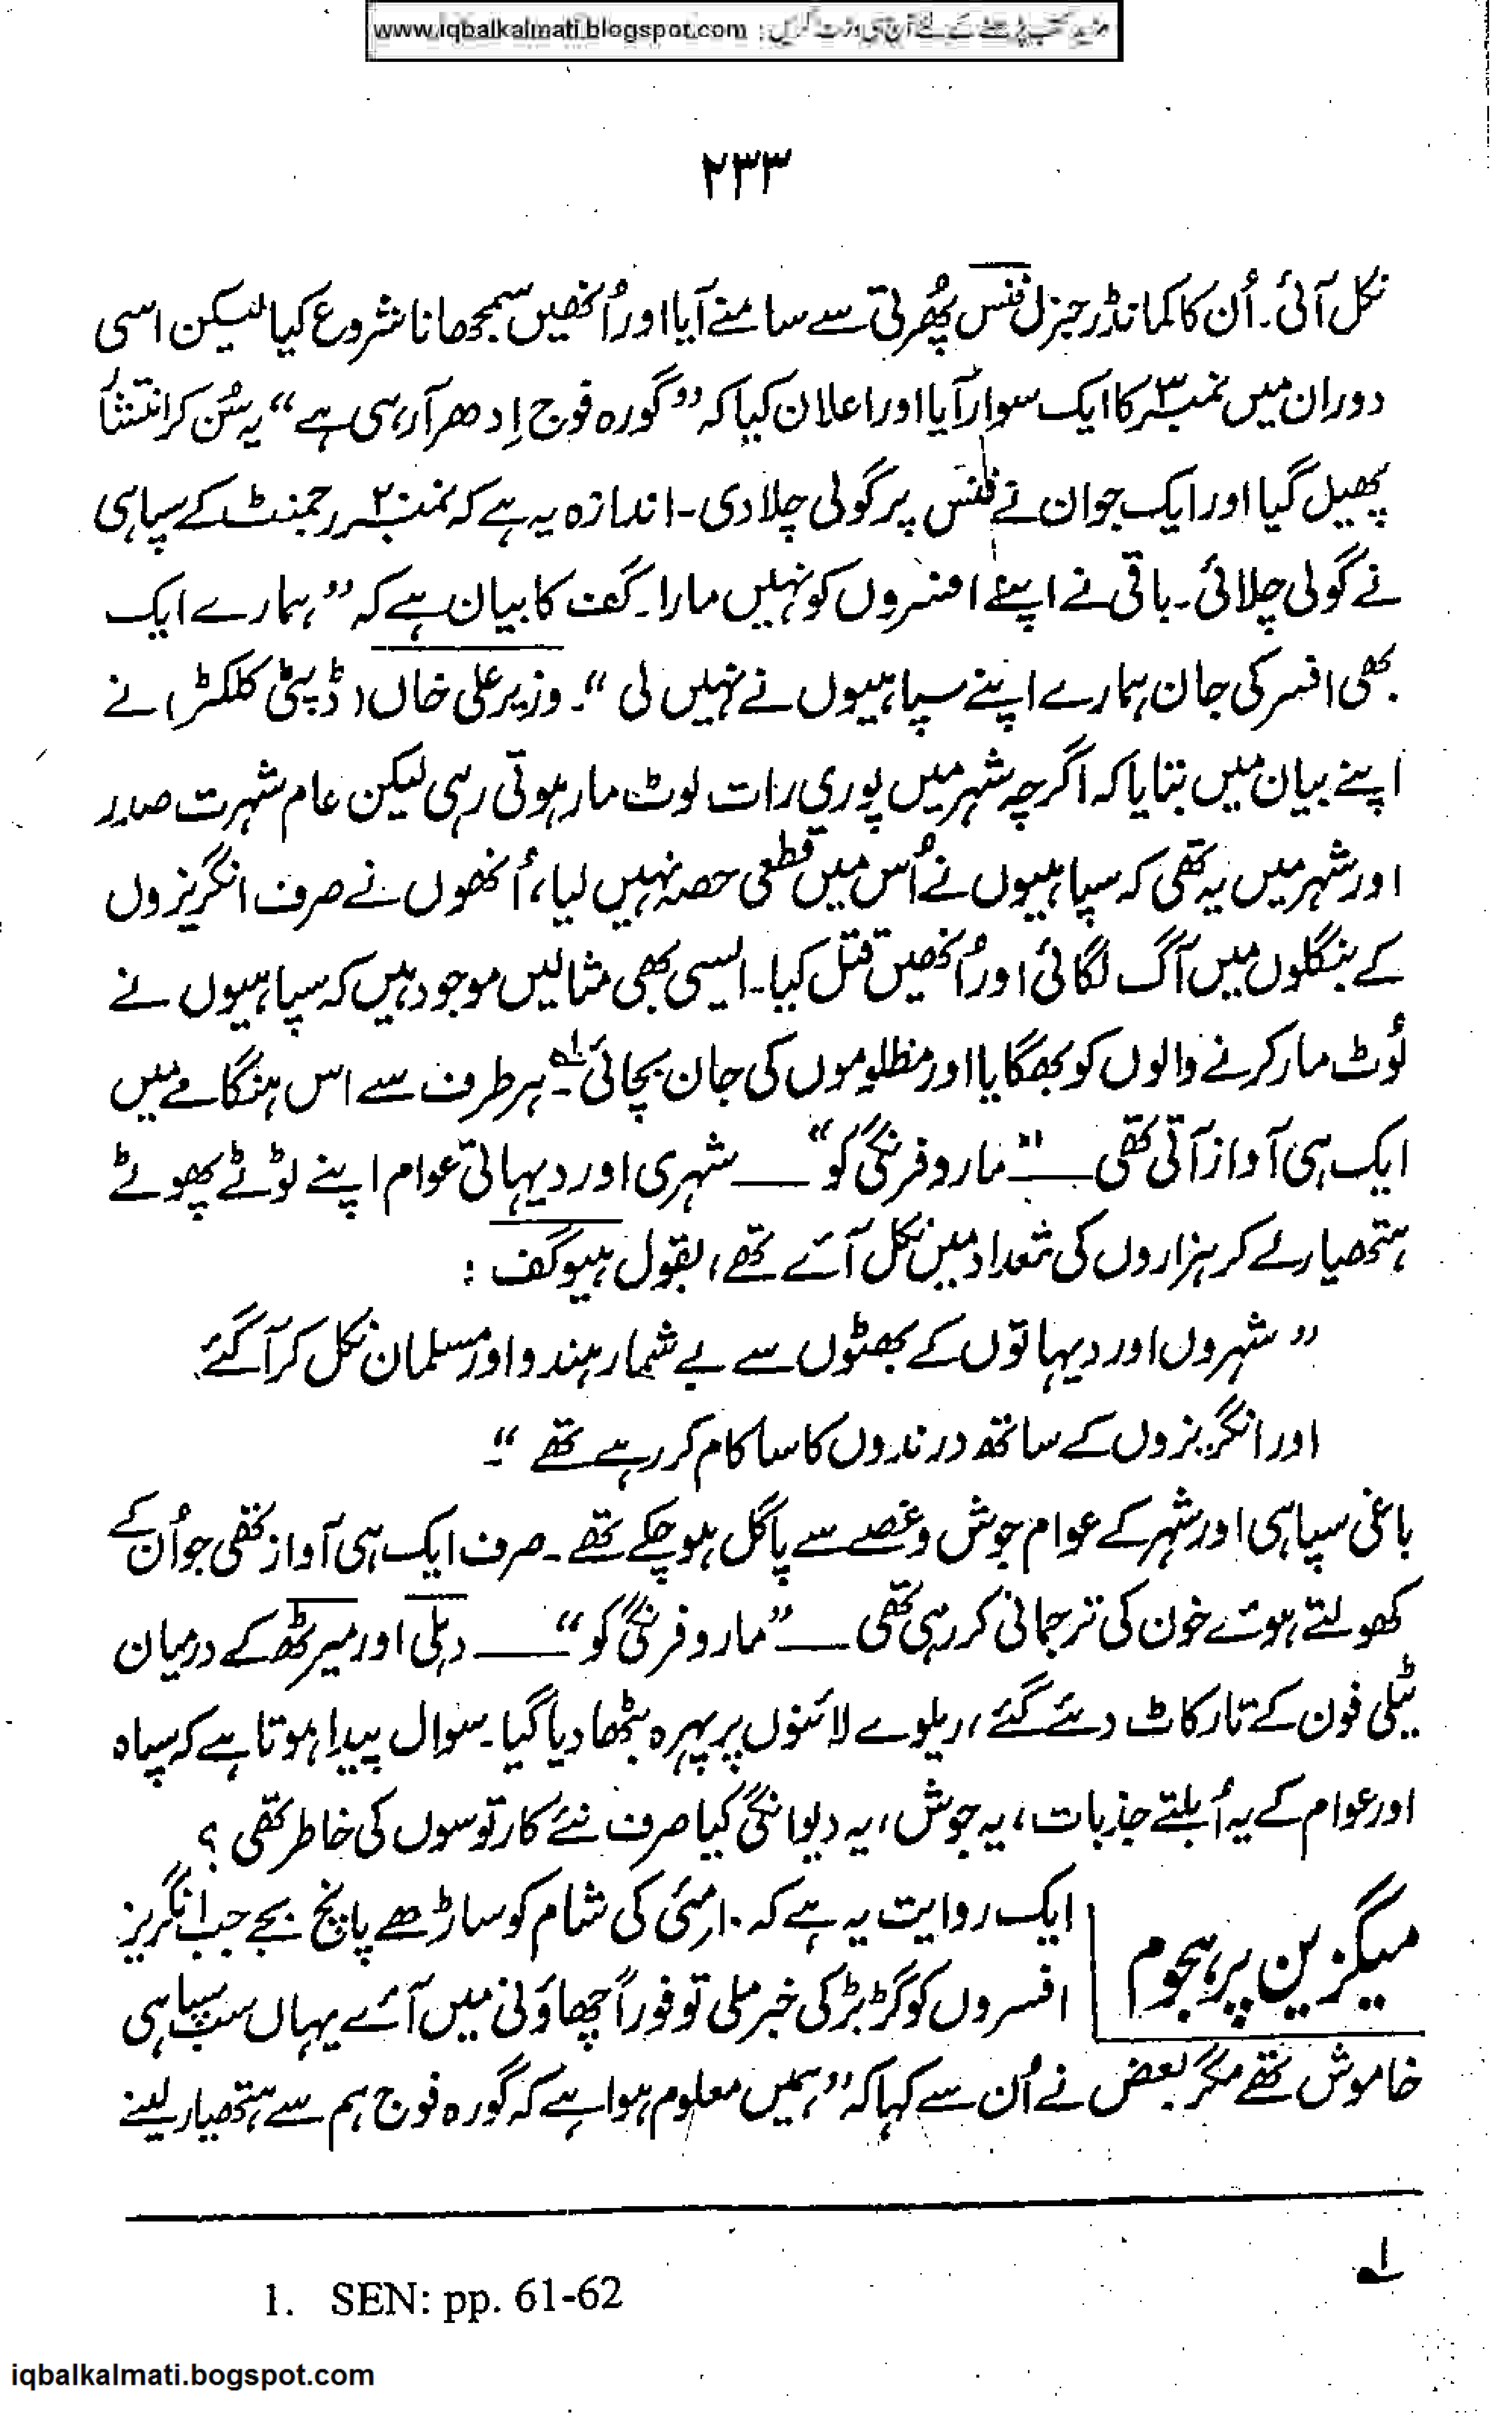 www.iqbalkalmati.blogspot.com : مزید کتب پڑھنے کے لئے آج ہی وزٹ کریں
۲۳۳
نکل آئی۔ اُن کا کمانڈر جنرل فنس پھُرتی سے سامنے آیا اور اُنھیں سمجھانا شروع کیا لیکن اسی
دوران میں نمبر ۳ کا ایک سوار آیا اور اعلان کیا کہ ”گورہ فوج اِدھر آ رہی ہے“ یہ سُن کر انتشار
پھیل گیا اور ایک جوان نے فنس پر گولی چلا دی۔ اندازہ یہ ہے کہ نمبر ۲۰ رجمنٹ کے سپاہی
نے گولی چلائی۔ باقی نے اپنے افسروں کو نہیں مارا۔ گف کا بیان ہے کہ ”ہمارے ایک
بھی افسر کی جان ہمارے اپنے سپاہیوں نے نہیں لی“۔ وزیر علی خاں (ڈپٹی کلکٹر) نے
اپنے بیان میں بتایا کہ اگرچہ شہر میں پوری رات لوٹ مار ہوتی رہی لیکن عام شہرت صدر
اور شہر میں یہ تھی کہ سپاہیوں نے اُس میں قطعی حصہ نہیں لیا، اُنھوں نے صرف انگریزوں
کے بنگلوں میں آگ لگائی اور اُنھیں قتل کیا۔ ایسی بھی مثالیں موجود ہیں کہ سپاہیوں نے
لُوٹ مار کرنے والوں کو بھگایا اور مظلوموں کی جان بچائی۔۱؂ ہر طرف سے اس ہنگامے میں
ایک ہی آواز آتی تھی —— ”مارو فرنگی کو“ —— شہری اور دیہاتی عوام اپنے ٹوٹے پھوٹے
ہتھیار لے کر ہزاروں کی تعداد میں نکل آئے تھے، بقول ہیو گف :
”شہروں اور دیہاتوں کے بھٹوں سے بے شمار ہندو اور مسلمان نکل کر آ گئے
اور انگریزوں کے ساتھ درندوں کا سا کام کر رہے تھے“۔
باغی سپاہی اور شہر کے عوام جوش و غصے سے پاگل ہو چکے تھے۔ صرف ایک ہی آواز تھی جو اُن کے
کھولتے ہوئے خون کی ترجمانی کر رہی تھی —— ”مارو فرنگی کو“ —— دہلی اور میرٹھ کے درمیان
ٹیلی فون کے تار کاٹ دئے گئے، ریلوے لائنوں پر پہرہ بٹھا دیا گیا۔ سوال پیدا ہوتا ہے کہ سپاہ
اور عوام کے یہ اُبلتے جذبات، یہ جوش، یہ دیوانگی کیا صرف نئے کارتوسوں کی خاطر تھی ؟
میگزین پر ہجوم
ایک روایت یہ ہے کہ ۱۰ مئی کی شام کو ساڑھے پانچ بجے جب انگریز
افسروں کو گڑبڑ کی خبر ملی تو فوراً چھاؤنی میں آئے یہاں سب سپاہی
خاموش تھے مگر بعض نے اُن سے کہا کہ ”ہمیں معلوم ہوا ہے کہ گورہ فوج ہم سے ہتھیار لینے
۱؂
1. SEN: pp. 61-62
iqbalkalmati.bogspot.com